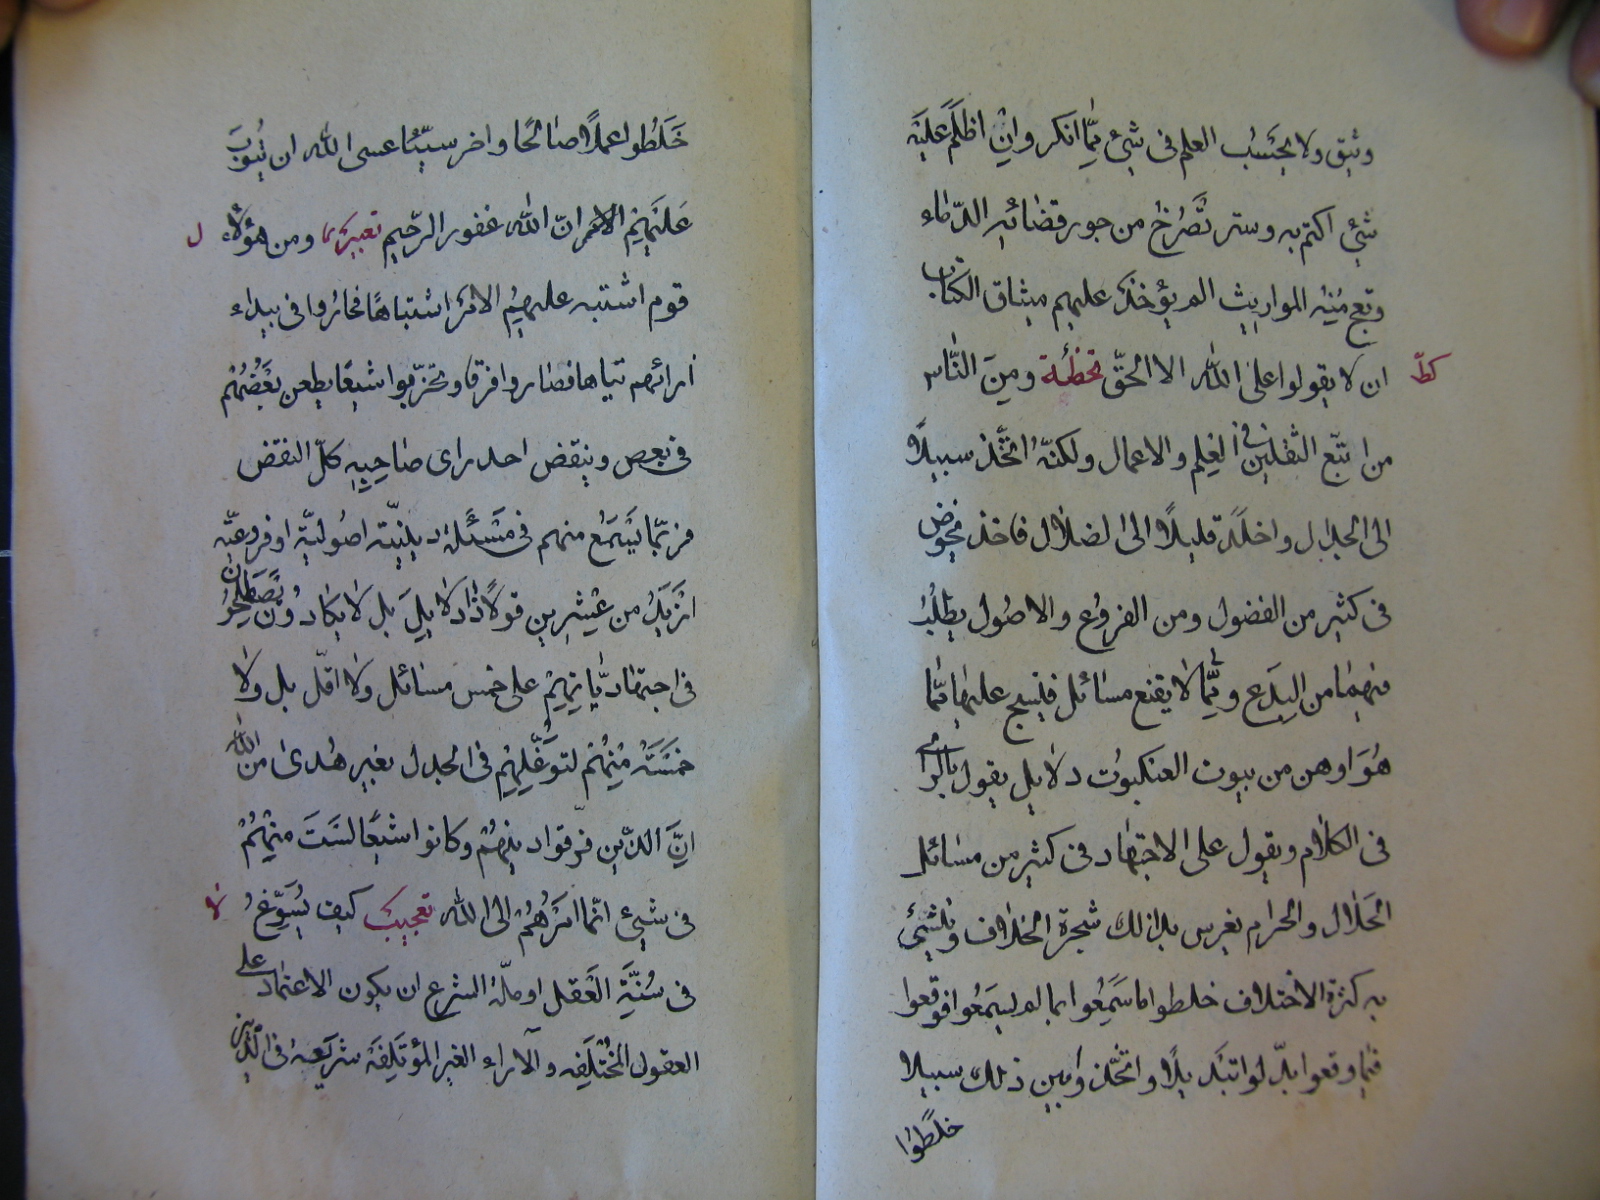 وثيق ولا يحسب العلم فى شئ ممّا انكر وان اظلم عليه
شئ اكتم به وستر تصرخ من جور قضائه الدّماء
وتعج منه المواريث الم يؤخذ عليهم ميثاق الكتاب
ان لا يقولوا على الله الا الحقّ تخطئة ومن النّاس
كط
من اتبّع الثقلين فى العلم والاعمال ولكنّه اتّخذ سبيلًا
الى الجدال واخلد قليلًا الى الضلال فاخذ يخوض
فى كثير من الفضول ومن الفروع والاصول يطلب
فيهما من البدع وممّا لا يقنع مسائل فينسج عليها ممّا
هو اوهن من بيوت العنكبوت دلايل يقول بالراى
فى الكلام ويقول على الاجتهاد فى كثير من مسائل
الحلال والحرام يغرس بذلك شجرة الخلاف وينشئ
به كثرة الاختلاف خلطوا ما سمعوا بما لم يسمعوا فوقعوا
فيما وقعوا بدّلوا تبديلًا واتّخذوا بين ذلك سبيلا
خلطوا
خلطوا عملًا صالحًا واخر سيّئًا عسى الله ان يتوب
عليهم ان الله غفور الرّحيم تعيير ومن هؤلاء
ل
قوم اشتبه عليهم الامر اشتباهًا فحاروا فى بيداء
ارائهم تياها فصاروا فرقا وتحزّبوا شيعًا يطعن بعضهم
فى بعض وينقض احد راى صاحبه كلّ النقض
فربّما يجتمع منهم فى مسئلة دينيّة اصوليّة او فروعيّة
ازيد من عشرين قولًا ذا دلايل بل لا يكادون يصطلحون
فى اجتهاديّاتهم على خمس مسائل ولا اقلّ بل ولا
خمسة منهم لتوغّلهم فى الجدل بغير هدى من الله
انّ الذين فرّقوا دينهم وكانوا شيعًا لست منهم
فى شئ انّما امرهم الى الله تعجيب كيف يسوّغ
لا
فى سنّة العقل او ملّة الشرع ان يكون الاعتماد على
العقول المختلفه والآراء الغير المؤتلفة شريعة فى الدّين